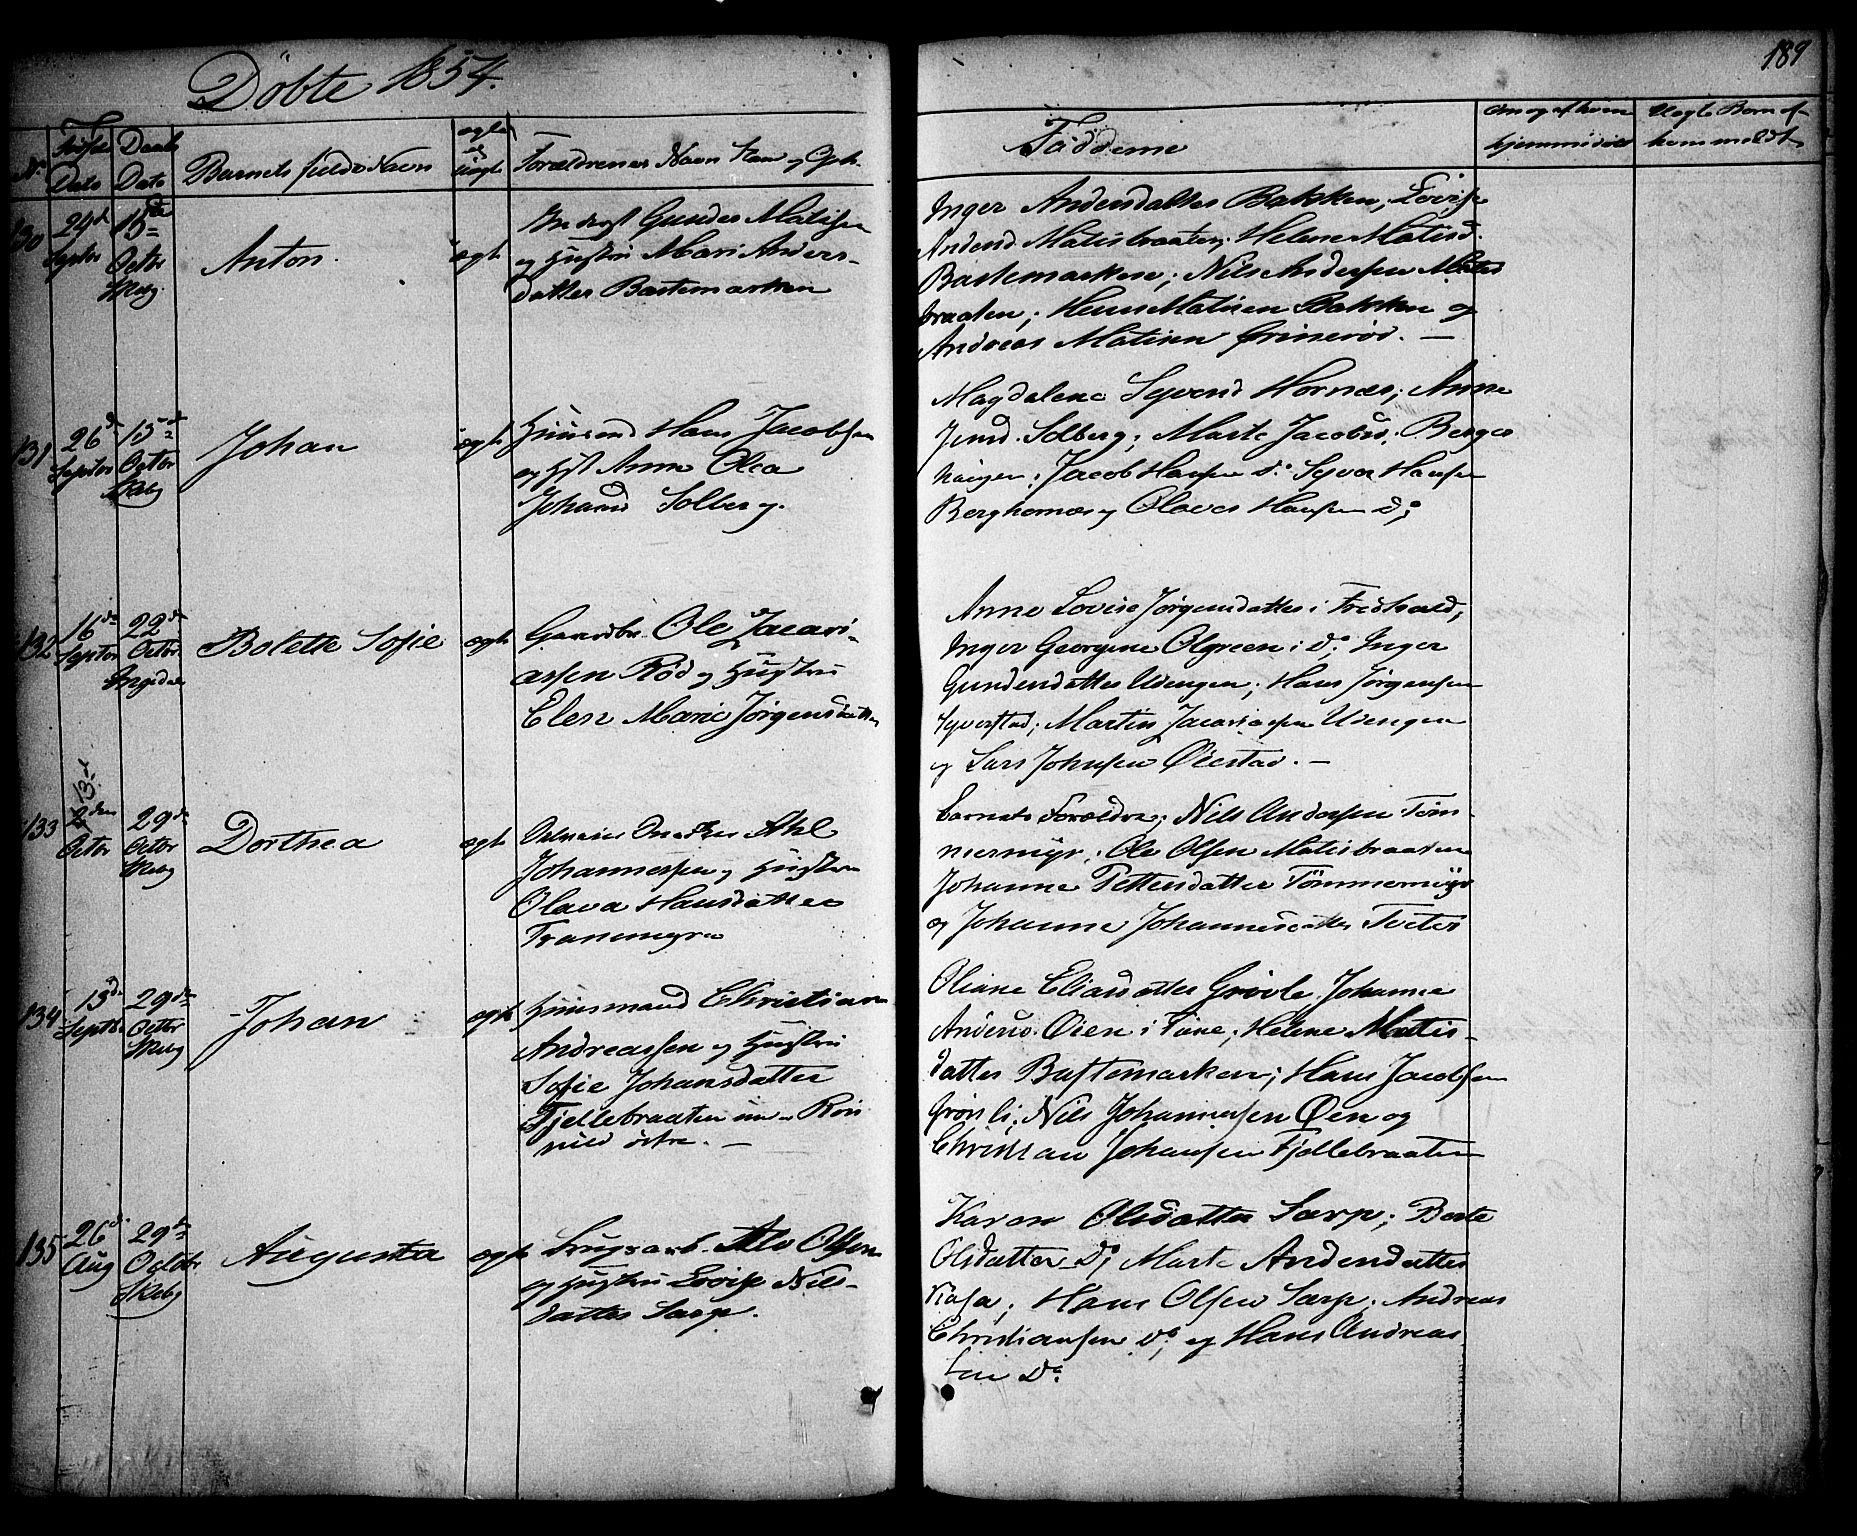 Döbte 1854.
189
No Födsels Dato Daabs Dato Barnets fulde Navn ægte ell uægte Forældrenes Navn Stan og
Fadderne
om og af hvem hjemmedöbt
Uægte Børn af hvem meldt
130 29d Septbr 15de Octbr Skebg. Anton. ægte
Gunder Matisen
og Hustru Mari Anders-
datter Bastemarken
Inger Andersdatter Bakken; Lovise
Andersd. Matisbraaten; Helene Matisd.
Bastemarken; Nils Andersen Matis
braaten; Hans Matisen Bakken og
Andreas Matisen Grinerød. —
131 26d Septbr 15d Octbr Skebg Johan ægte
Huusmd Hans Jacobsen
og Hst Anne Olea
Johansd Solberg.
Magdalena Syversd Hornæs; Anne
Jensd. Solberg; Marte Jacobsd. Berger
Hansen do Syver Hansen
Berghornæs og Olaves Hansen do;
132 16de Septbr 22de Octbr Ingedal Bolette Sofie ægte
Gaardbr. Ole Jacari-
assen Rød og Hustru
Elen Marie Jørgensdatter
Anne Lovise Jørgensdatter i Fredhald,
Inger Georgine Olgreen i do. Inger
Gundersdatter Udengen; Hans Jørgensen
Syverstad; Martin Jacariasen Udengen
og Lars Johnsen Øiestad. —
133 13d Octbr 29de Octbr Skebg Dorthea ægte
Johannessen og Hustru
Olava Hansdatter
Tranemyra
barnets Forældre; Nils Andersen Tøm-
mermyr; Ole Olsen Matisbraaten
Johanne Pettersdatter Tömmermyr
og Johanne Johannesdatter Tveter
134 13de Septbr 29de Octbr Skebg Johan ægte
Huusmand Christian
Andreassen og Hustru
Sofie Johansdatter
Fjellebraaten un
østre. —
Oliane Eliasdatter Johanne
Andersd. Øien i Tune; Helene Matis-
datter Bastemarken; Hans Jacobsen
Grønli; Nils Johannesen Øen og
Christian Johansen Fjellebraaten
135 26d. Aug 29de Octbr. Skebg Augusta ægte
Brugsarb. Olsen
og Hustru Lovise Nils-
datter Sarp.
Karen Olsdatter Sarp; Berte
Olsdatter do; Marte Andersdatter
Hans Olsen Sarp; Andreas
Christiansen do; og Hans Andreas
do.